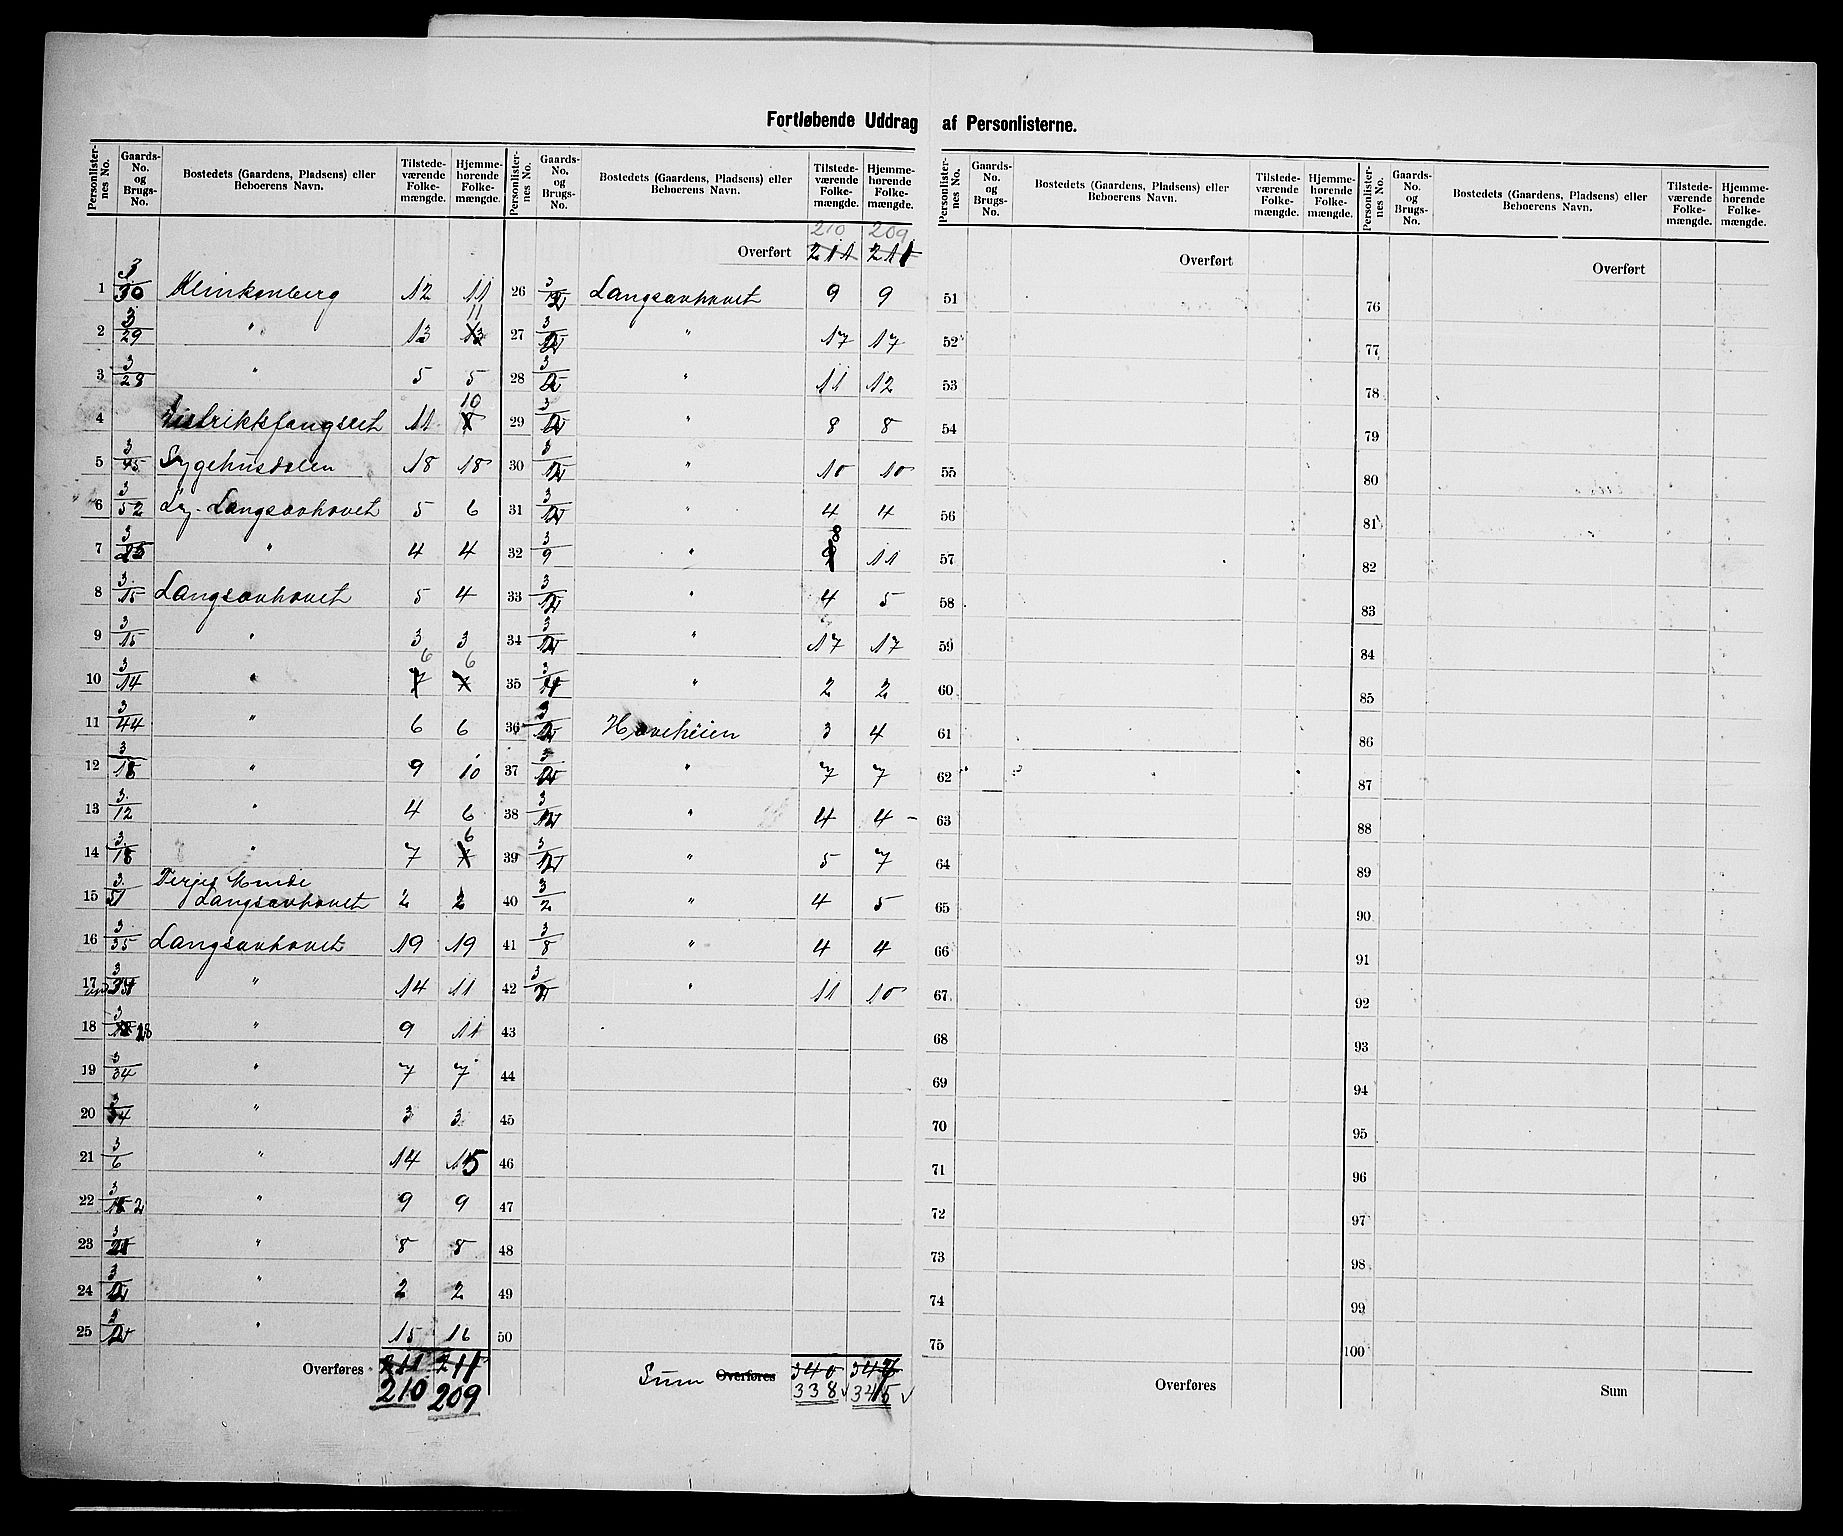 Fortløbende Uddrag af Personlisterne.
Personlisternes No. | Gaards-No. og Brugs-No. | Bostedets (Gaardens, Pladsens) eller Beboerens Navn. | Tilstedeværende Folkemængde. | Hjemmehørende Folkemængde.
1 3/30 Klinkenberg 12 11
2 3/29 " 13 11
3 3/28 " 5 5
4 Distriktsfængslet 11 10
5 3/45 Sygehusdalen 18 18
6 3/52 Lej. Langsævhovet 5 6
7 3/25 " 4 4
8 3/15 Langsævhovet 5 4
9 3/15 " 3 3
10 3/14 " 6 6
11 3/44 " 6 6
12 3/18 " 9 10
13 3/12 " 4 6
14 3/18 " 7 6
15 3/51 Terjes Minde Langsævhovet 2 2
16 3/35 Langsævhovet 19 19
17 " 14 11
18 3/18 " 9 11
19 3/34 " 7 7
20 3/34 " 3 3
21 3/6 " 14 15
22 " 9 9
23 3/21 " 8 8
24 3/12 " 2 2
25 3/12 " 15 16
Overføres 211 211
210 209
Personlisternes No. | Gaards-No. og Brugs-No. | Bostedets (Gaardens, Pladsens) eller Beboerens Navn. | Tilstedeværende Folkemængde. | Hjemmehørende Folkemængde.
210 209
Overført 211 211
26 Langsævhovet 9 9
27 " 17 17
28 " 11 12
29 " 8 8
30 " 10 10
31 " 4 4
32 3/9 " 8 11
33 " 4 5
34 " 17 17
35 " 2 2
36 Haveheien 3 4
37 " 7 7
38 " 4 4
39 " 5 7
40 3/2 " 4 5
41 3/8 " 4 4
42 " 11 10
43
44
45
46
47
48
49
50
Sum Overføres 340 347
338 345
Personlisternes No. | Gaards-No. og Brugs-No. | Bostedets (Gaardens, Pladsens) eller Beboerens Navn. | Tilstedeværende Folkemængde. | Hjemmehørende Folkemængde.
Overført
51
52
53
54
55
56
57
58
59
60
61
62
63
64
65
66
67
68
69
70
71
72
73
74
75
Overføres
Personlisternes No. | Gaards-No. og Brugs-No. | Bostedets (Gaardens, Pladsens) eller Beboerens Navn. | Tilstedeværende Folkemængde. | Hjemmehørende Folkemængde.
Overført
76
77
78
79
80
81
82
83
84
85
86
87
88
89
90
91
92
93
94
95
96
97
98
99
100
Sum